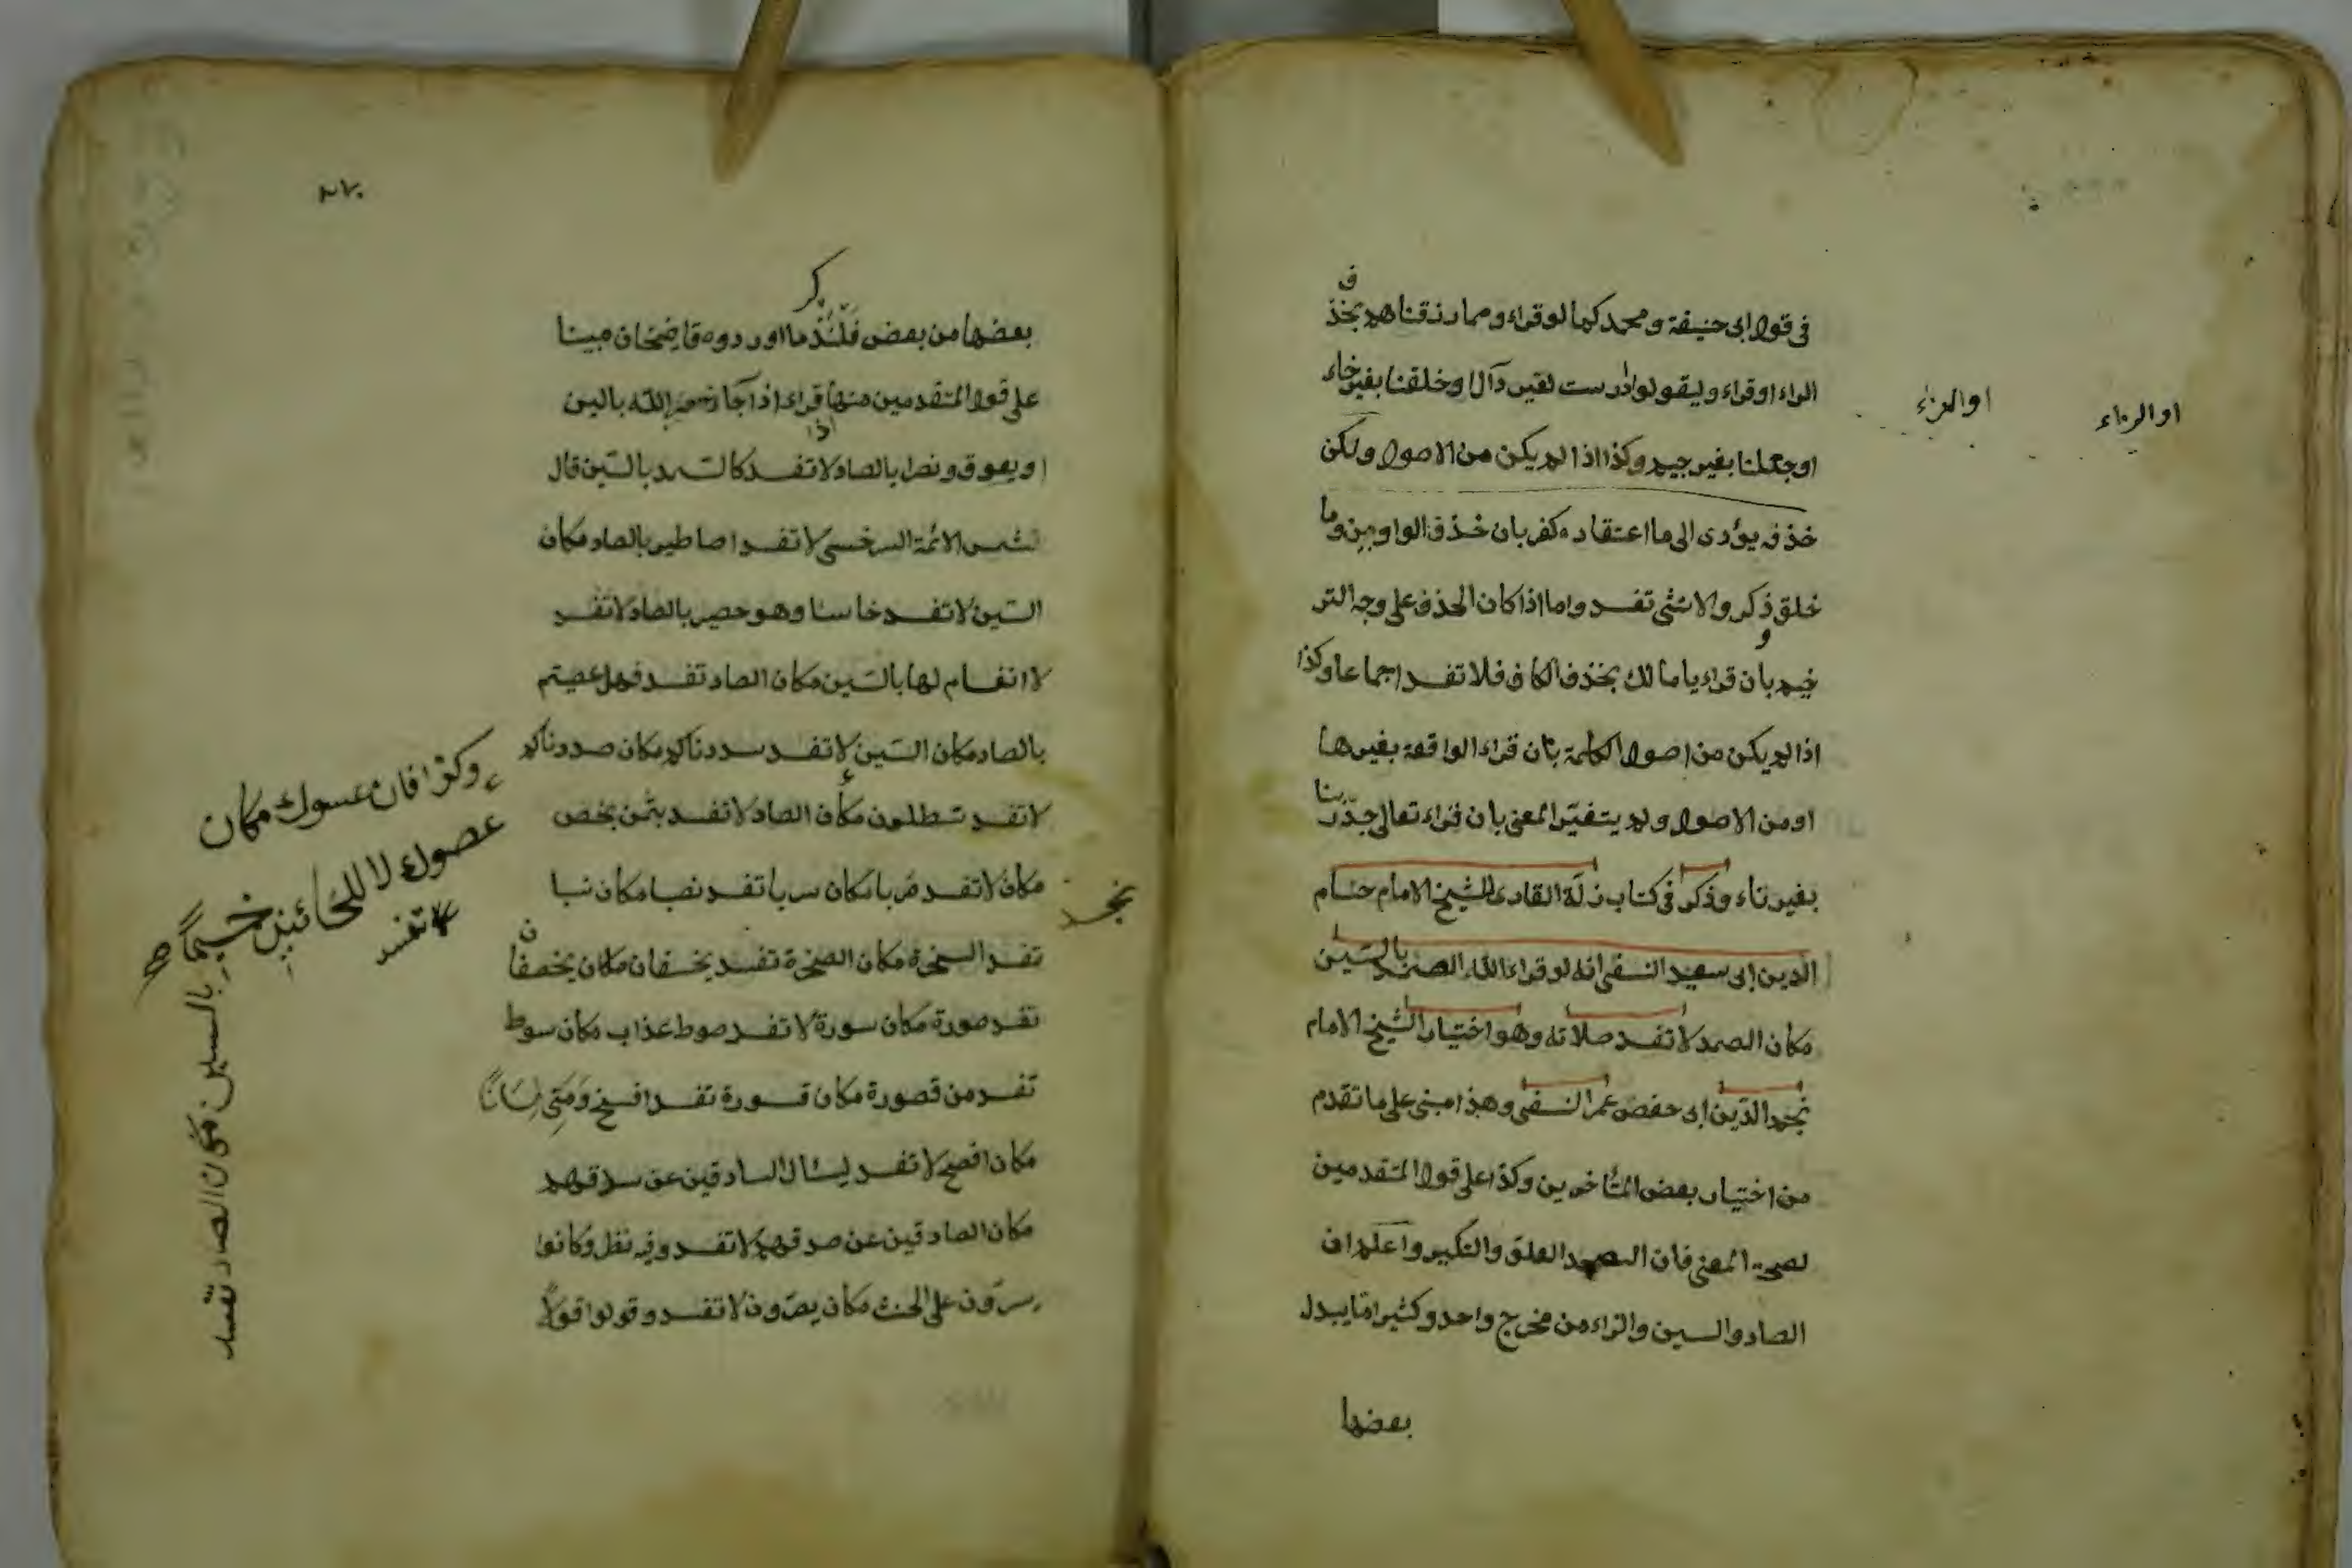 في قول ابى حنيفة ومحمد كما لو قراء ومما رزقناهم بحذف
الراء او قراء وليقولوا درست بغير دال او خلقنا بغير خاء
او الراء
او الزاء
او جعلنا بغير جيم وكذا اذا لم يكن من الاصول ولكن
حذفه يؤدى الى ما اعتقاده كفر بان حذف الواو من وما
خلق ذكر والانثى تفسد واما اذا كان الحذف على وجه التر
خيم بان قراء يا مالك بحذف الكاف فلا تفسد اجماعا وكذا
اذا لم يكن من اصول الكلمة بان قراء الواقعة بغير ها
او من الاصول ولم يتغير المعنى بان قراء تعالى جد ربنا
بغير تاء وذكر في كتاب زلة القارى للشيخ الامام حسام
الدين ابى سعيد النسفى انه لو قراء الله الصمد بالسين
مكان الصمد لا تفسد صلاته وهو اختيار الشيخ الامام
نجم الدين ابى حفص عمر النسفى وهذا مبنى على ما تقدم
من اختيار بعض المتأخرين وكذا على قول المتقدمين
لصحة المعنى فان السمد العلو والتكبر واعلم ان
الصاد والسين والزاء من مخرج واحد وكثيرا ما يبدل
بعضها
بعضها من بعض فلنذكر ما اورده قاضيخان مبينا
على قول المتقدمين منها قراء اذا جاء نصر الله بالسين
او يعوق ونصرا بالصاد لا تفسد كالسمد بالسين قال
شمس الائمة السرخسى لا تفسد اصاطير بالصاد مكان
السين لا تفسد خاسئا وهو حصير بالصاد لا تفسد
لا انفسام لها بالسين مكان الصاد تفسد فهل عصيتم
بالصاد مكان السين لا تفسد سددناكم مكان صددناكم
لا تفسد تسطلون مكان الصاد لا تفسد بثمن بخص
مكان لا تفسد صربا مكان سربا تفسد نصبا مكان نسبا
نجد
تفسد السخرة مكان الصخرة تفسد يخسفان مكان يخصفان
تفسد صورة مكان سورة لا تفسد صوط عذاب مكان سوط
تفسد من قصورة مكان قسورة تفسد افسح ومنى لسانا
مكان افصح لا تفسد ليسئال السادقين عن سدقهم
مكان الصادقين عن صدقهم لا تفسد وفيه نظر وكانوا
يسرون على الحنث مكان يصرون لا تفسد وقولوا قولا
وكذا فان عسوك مكان
عصوك لا للخائنين خسيما
لا تفسد
بالسين مكان الصاد تفسد